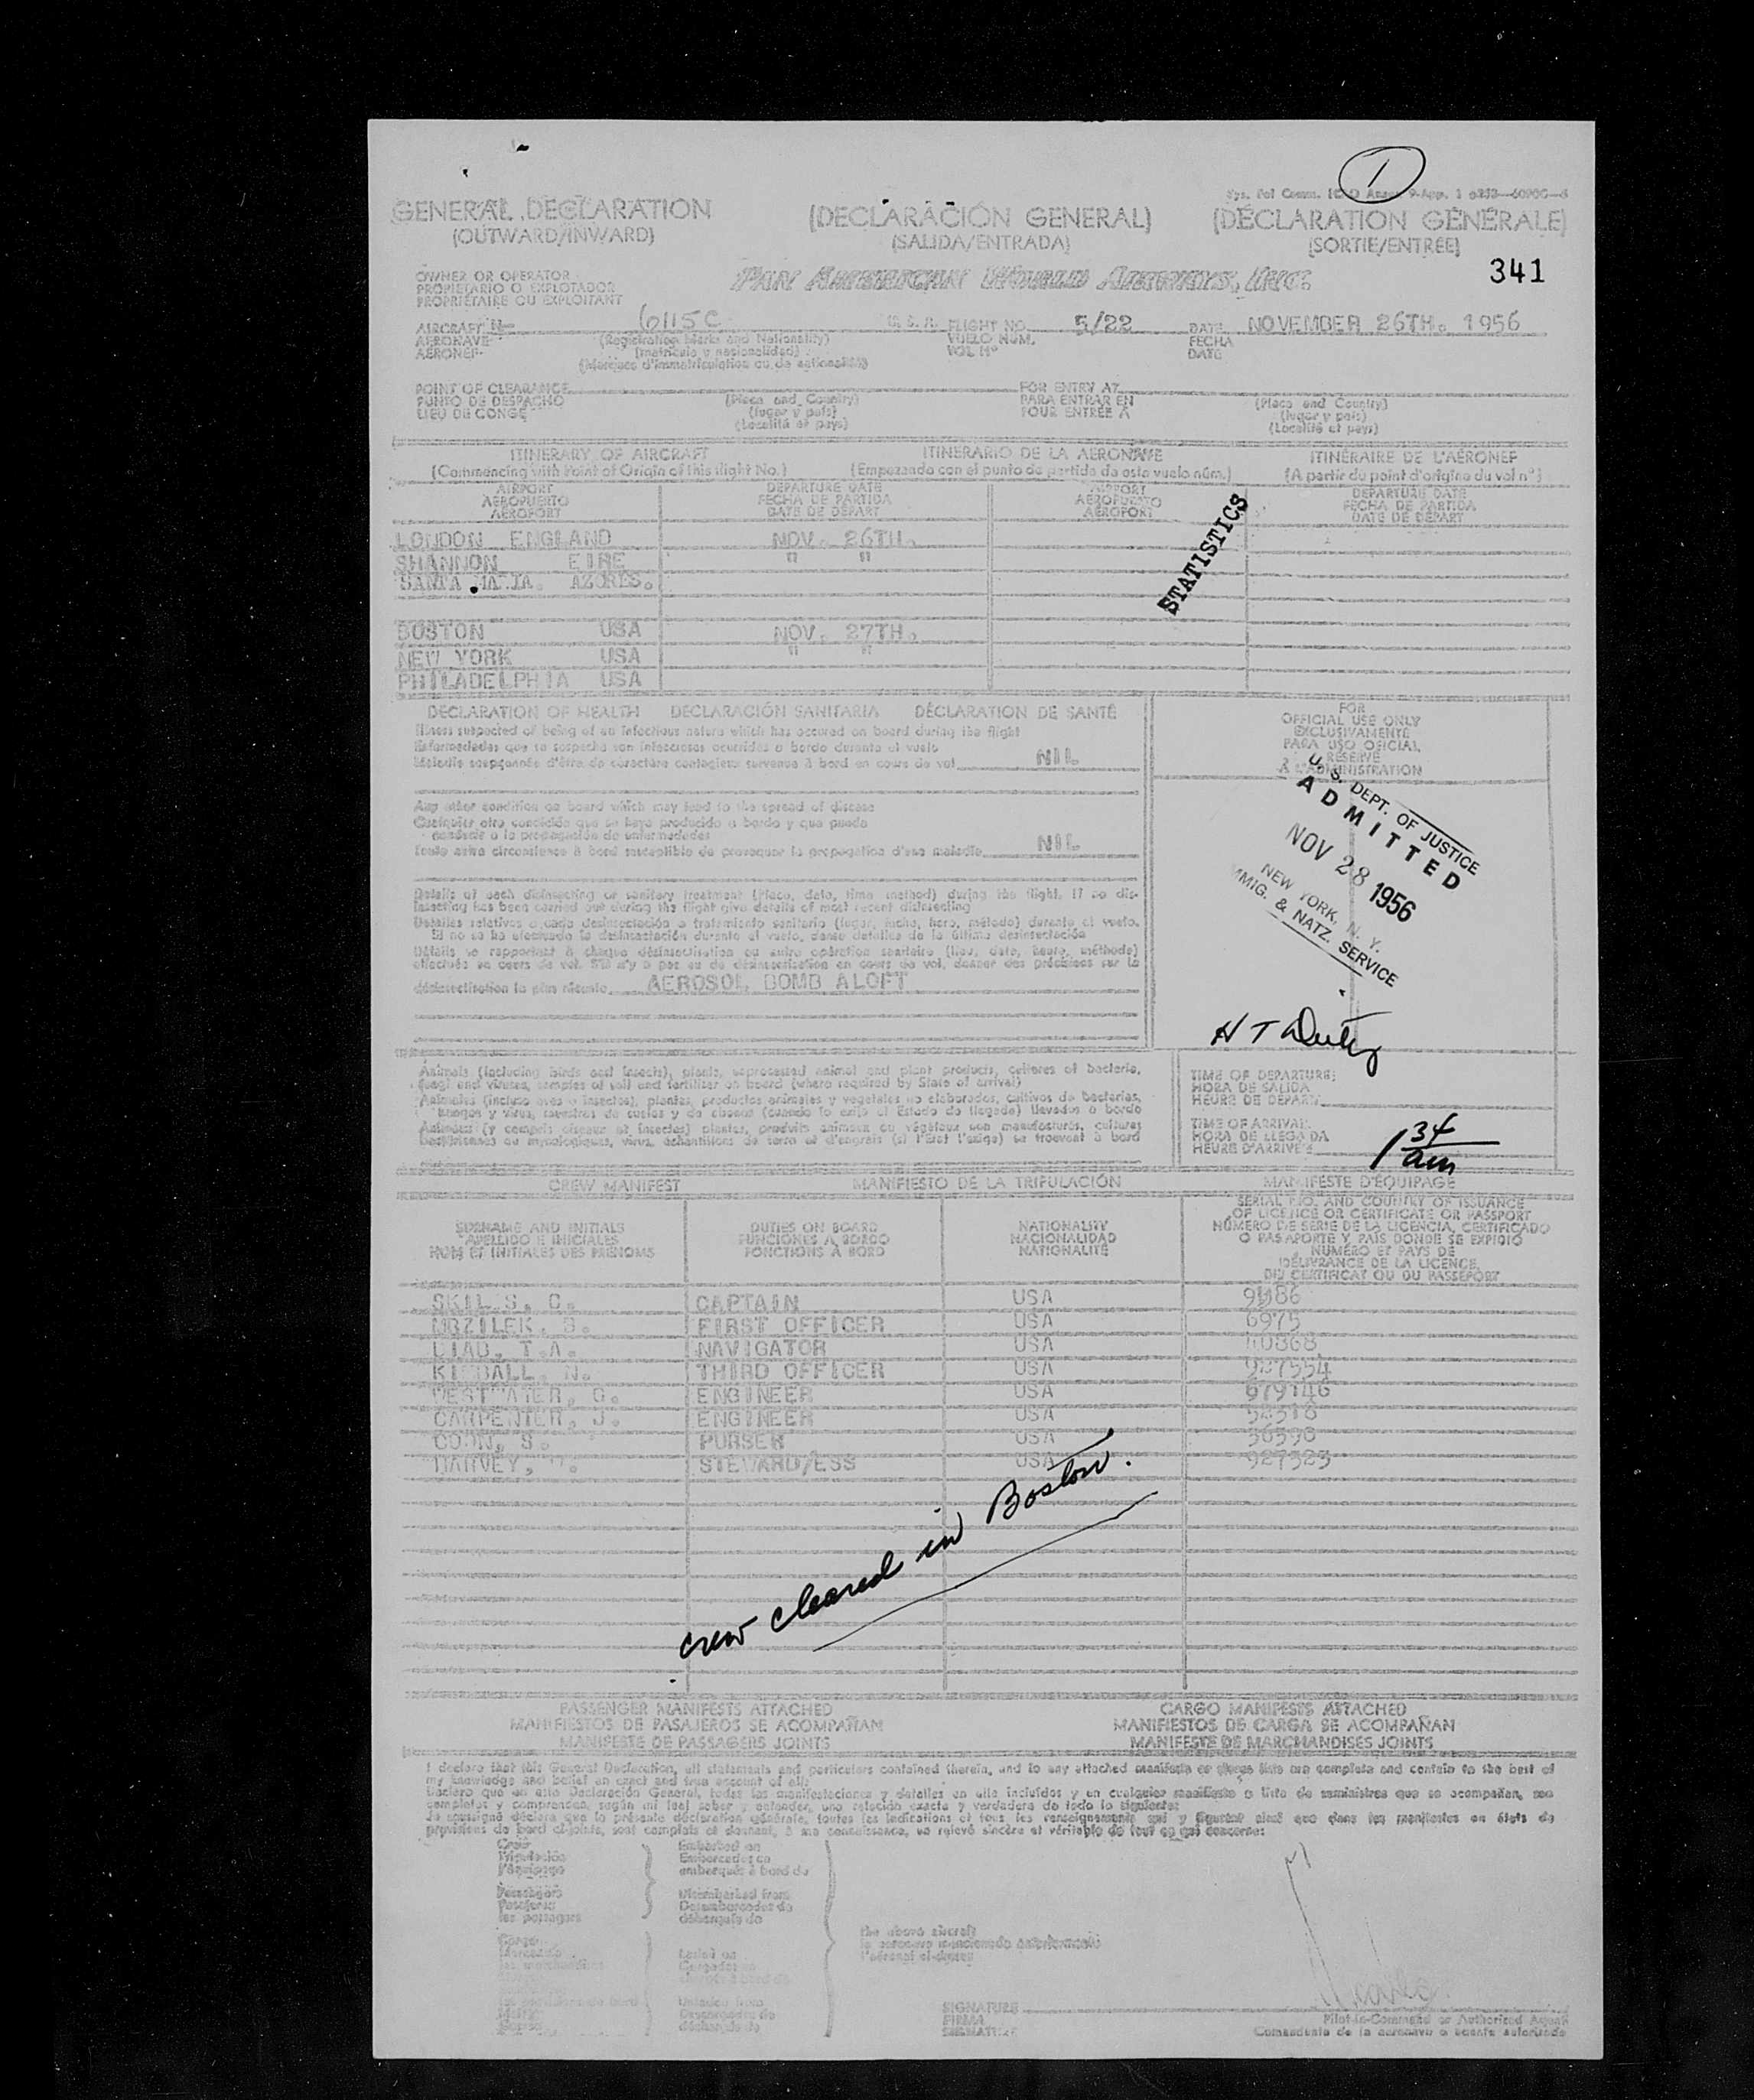 1
Annex 9-App. 1
GENERAL DECLARATION (DECLARACIÓN GENERAL) (DÉCLARATION GÉNÉRALE)
(OUTWARD/INWARD) (SALIDA/ENTRADA) (SORTIE/ENTRÉE)
OWNER OR OPERATOR
PROPIETARIO O EXPLOTADOR
PROPRIÉTAIRE OU EXPLOITANT
PAN AMERICAN WORLD AIRWAYS, INC.
341
AIRCRAFT N- 6115C U.S.A. FLIGHT NO. 5/22 DATE NOVEMBER 26TH. 1956
AERONAVE (Registration Marks and Nationality) VUELO NÚM. FECHA
AÉRONEF (matrícula y nacionalidad) VOL Nº DATE
(Marques d'immatriculation ou de nationalité)
POINT OF CLEARANCE FOR ENTRY AT
PUNTO DE DESPACHO (Place and Country) PARA ENTRAR EN (Place and Country)
LIEU DE CONGÉ (lugar y país) POUR ENTRÉE À (lugar y país)
(Localité et pays) (Localité et pays)
ITINERARY OF AIRCRAFT ITINERARIO DE LA AERONAVE ITINÉRAIRE DE L'AÉRONEF
(Commencing with Point of Origin of this flight No.) (Empezando con el punto de partida de este vuelo núm.) (A partir du point d'origine du vol nº)
AIRPORT DEPARTURE DATE AIRPORT DEPARTURE DATE
AEROPUERTO FECHA DE PARTIDA AEROPUERTO FECHA DE PARTIDA
AÉROPORT DATE DE DÉPART AÉROPORT DATE DE DÉPART
STATISTICS
LONDON ENGLAND NOV. 26TH.
SHANNON EIRE " "
SANTA MARIA. AZORES.
BOSTON USA NOV. 27TH.
NEW YORK USA " "
PHILADELPHIA USA
DECLARATION OF HEALTH DECLARACIÓN SANITARIA DÉCLARATION DE SANTÉ
Illness suspected of being of an infectious nature which has occured on board during the flight
Enfermedades que se sospecha son infecciosas ocurridas a bordo durante el vuelo
Maladie soupçonnée d'être de caractère contagieux survenue à bord en cours de vol NIL
Any other condition on board which may lead to the spread of disease
Cualquier otra condición que se haya producido a bordo y que pueda
conducir a la propagación de enfermedades
Toute autre circonstance à bord susceptible de provoquer la propagation d'une maladie NIL
Details of each disinsecting or sanitary treatment (place, date, time method) during the flight. If no disinsecting
has been carried out during the flight give details of most recent disinsecting
Detalles relativos a cada desinsectación o tratamiento sanitario (lugar, fecha, hora, método) durante el vuelo.
Si no se ha efectuado la desinsectación durante el vuelo, danse detalles de la última desinsectación
Détails se rapportant à chaque désinsectisation ou autre opération sanitaire (lieu, date, heure, méthode)
effectués en cours de vol. S'il n'y a pas eu de désinsectisation en cours de vol, donner des précisions sur la
désinsectisation la plus récente AEROSOL BOMB ALOFT
FOR
OFFICIAL USE ONLY
EXCLUSIVAMENTE
PARA USO OFICIAL
RÉSERVÉ
À L'ADMINISTRATION
U. S. DEPT. OF JUSTICE
ADMITTED
NOV 28 1956
NEW YORK, N. Y.
IMMIG. & NATZ. SERVICE
Animals (including birds and insects), plants, unprocessed animal and plant products, cultures of bacteria,
fungi and viruses, samples of soil and fertilizer on board (where required by State of arrival)
Animales (incluso aves e insectos), plantas, productos animales y vegetales no elaborados, cultivos de bacterias,
hongos y virus, muestras de suelos y de abonos (cuando lo exija el Estado de llegada) llevados a bordo
Animaux (y compris oiseaux et insectes) plantes, produits animaux ou végétaux non manufacturés, cultures
bactériennes ou mycologiques, virus, échantillons de terre et d'engrais (si l'État l'exige) se trouvant à bord
TIME OF DEPARTURE:
HORA DE SALIDA
HEURE DE DÉPART
TIME OF ARRIVAL:
HORA DE LLEGADA
HEURE D'ARRIVÉE 1 34 am
CREW MANIFEST MANIFIESTO DE LA TRIPULACIÓN MANIFESTE D'ÉQUIPAGE
SURNAME AND INITIALS DUTIES ON BOARD NATIONALITY SERIAL NO. AND COUNTRY OF ISSUANCE
APELLIDO E INICIALES FUNCIONES A BORDO NACIONALIDAD OF LICENCE OR CERTIFICATE OR PASSPORT
NOM ET INITIALES DES PRÉNOMS FONCTIONS À BORD NATIONALITÉ NÚMERO DE SERIE DE LA LICENCIA, CERTIFICADO
O PASAPORTE Y PAÍS DONDE SE EXPIDIÓ
NUMÉRO ET PAYS DE
DÉLIVRANCE DE LA LICENCE,
DU CERTIFICAT OU DU PASSEPORT
CAPTAIN USA
FIRST OFFICER USA 6975
NAVIGATOR USA
KIMBALL, N. THIRD OFFICER USA
ENGINEER USA 679146
CARPENTER, J. ENGINEER USA
PURSER USA
HARVEY, STEWARD/ESS USA 927323
crew cleared in Boston.
PASSENGER MANIFESTS ATTACHED CARGO MANIFESTS ATTACHED
MANIFIESTOS DE PASAJEROS SE ACOMPAÑAN MANIFIESTOS DE CARGA SE ACOMPAÑAN
MANIFESTE DE PASSAGERS JOINTS MANIFESTE DE MARCHANDISES JOINTS
I declare that this General Declaration, all statements and particulars contained therein, and in any attached manifests or stores lists are complete and contain to the best of
my knowledge and belief an exact and true account of all:
Declaro que en esta Declaración General, todas las manifestaciones y detalles en ella incluídos y en cualquier manifiesto o lista de suministros que se acompañan, son
completos y comprenden, según mi leal saber y entender, una relación exacta y verdadera de todo lo siguiente:
Crew Embarked on
Tripulación Embarcados en
l'équipage embarqués à bord du
Passengers Disembarked from
Pasajeros Desembarcados de
les passagers débarqués du
the above aircraft
Cargo Laded on
Cargados en
SIGNATURE
FIRMA Pilot-in-Command or Authorized Agent
SIGNATURE Comandante de la aeronave o agente autorizado